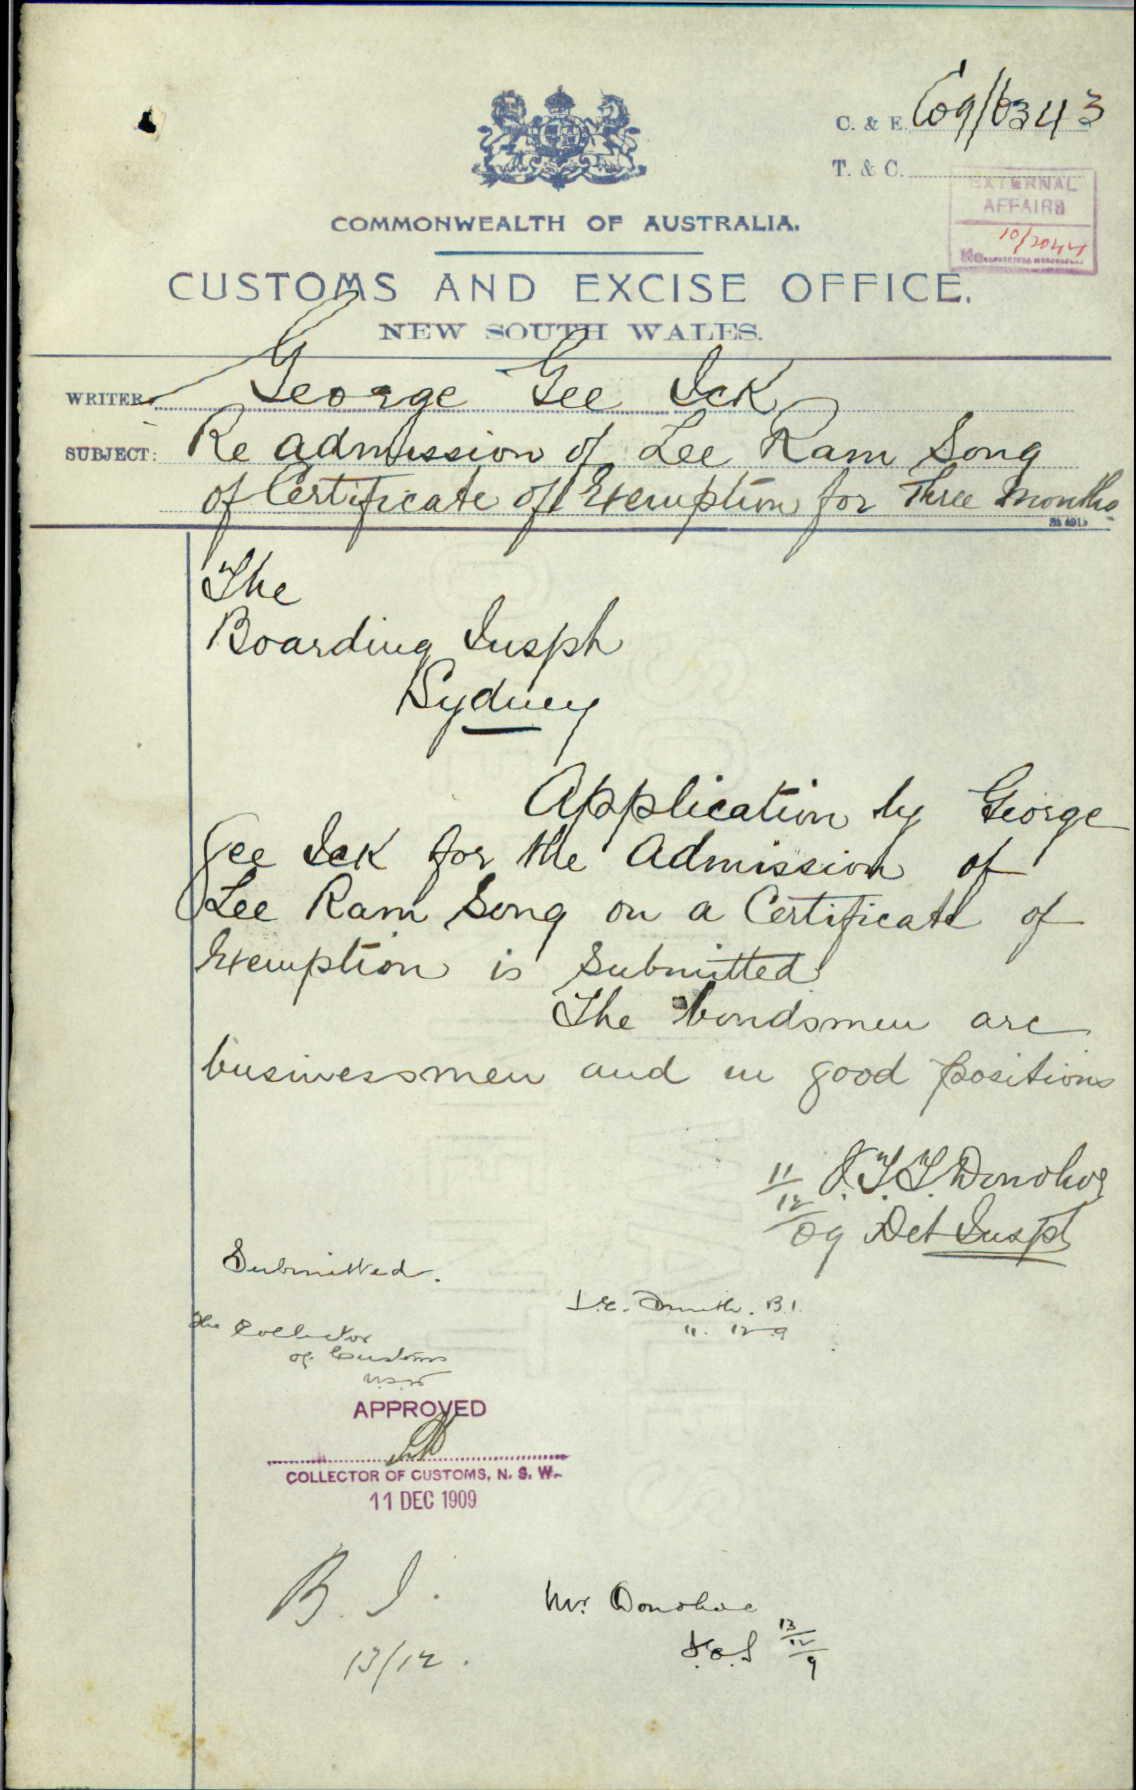 C. & E. C09/6343
T. & C.
EXTERNAL
AFFAIRS
No. 10/2044
COMMONWEALTH OF AUSTRALIA.
CUSTOMS AND EXCISE OFFICE.
NEW SOUTH WALES.
WRITER: George Gee Ick
SUBJECT: Re admission of Lee Ram Song
of Certificate of Exemption for Three Months
The
Boarding Inspr
Sydney
Application by George
Gee Ick for the Admission of
Lee Ram Song on a Certificate of
Exemption is submitted
The bondsmen are
businessmen and in good positions
11/12/09 J.T.T. Donohoe
Det Inspr
Submitted.
B.I.
11. 12 9
The Collector
of Customs
N.S.W
APPROVED
COLLECTOR OF CUSTOMS, N. S. W.
11 DEC 1909
B. I.
13/12.
Mr. Donohoe
13/12/9